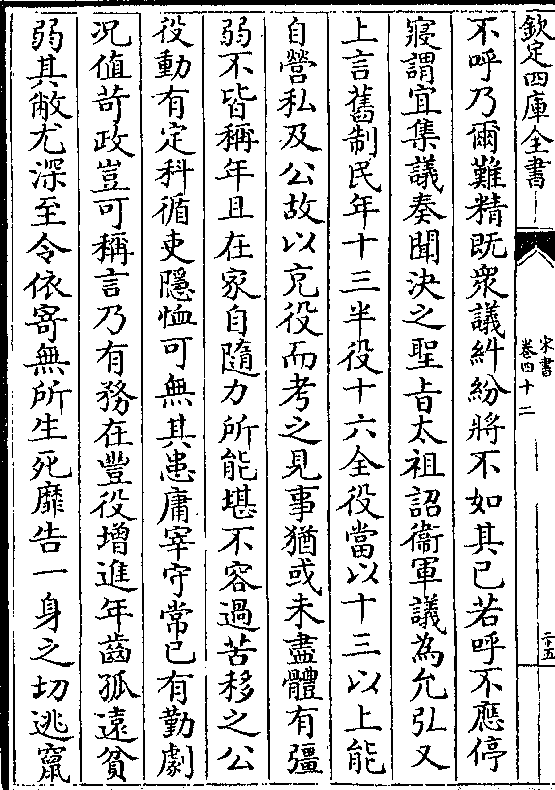 欽定四庫全書
宋書
卷四十二
二十五
不呼乃爾難精既衆議糾紛將不如其已若呼不應停
寢謂宜集議奏聞決之聖旨太祖詔衞軍議為允弘又
上言舊制民年十三半役十六全役當以十三以上能
自營私及公故以充役而考之見事猶或未盡體有彊
弱不皆稱年且在家自隨力所能堪不容過苦移之公
役動有定科循吏隱恤可無其患庸宰守常已有勤劇
况值苛政豈可稱言乃有務在豐役增進年齒孤遠貧
弱其敝尤深至令依寄無所生死靡告一身之切逃竄